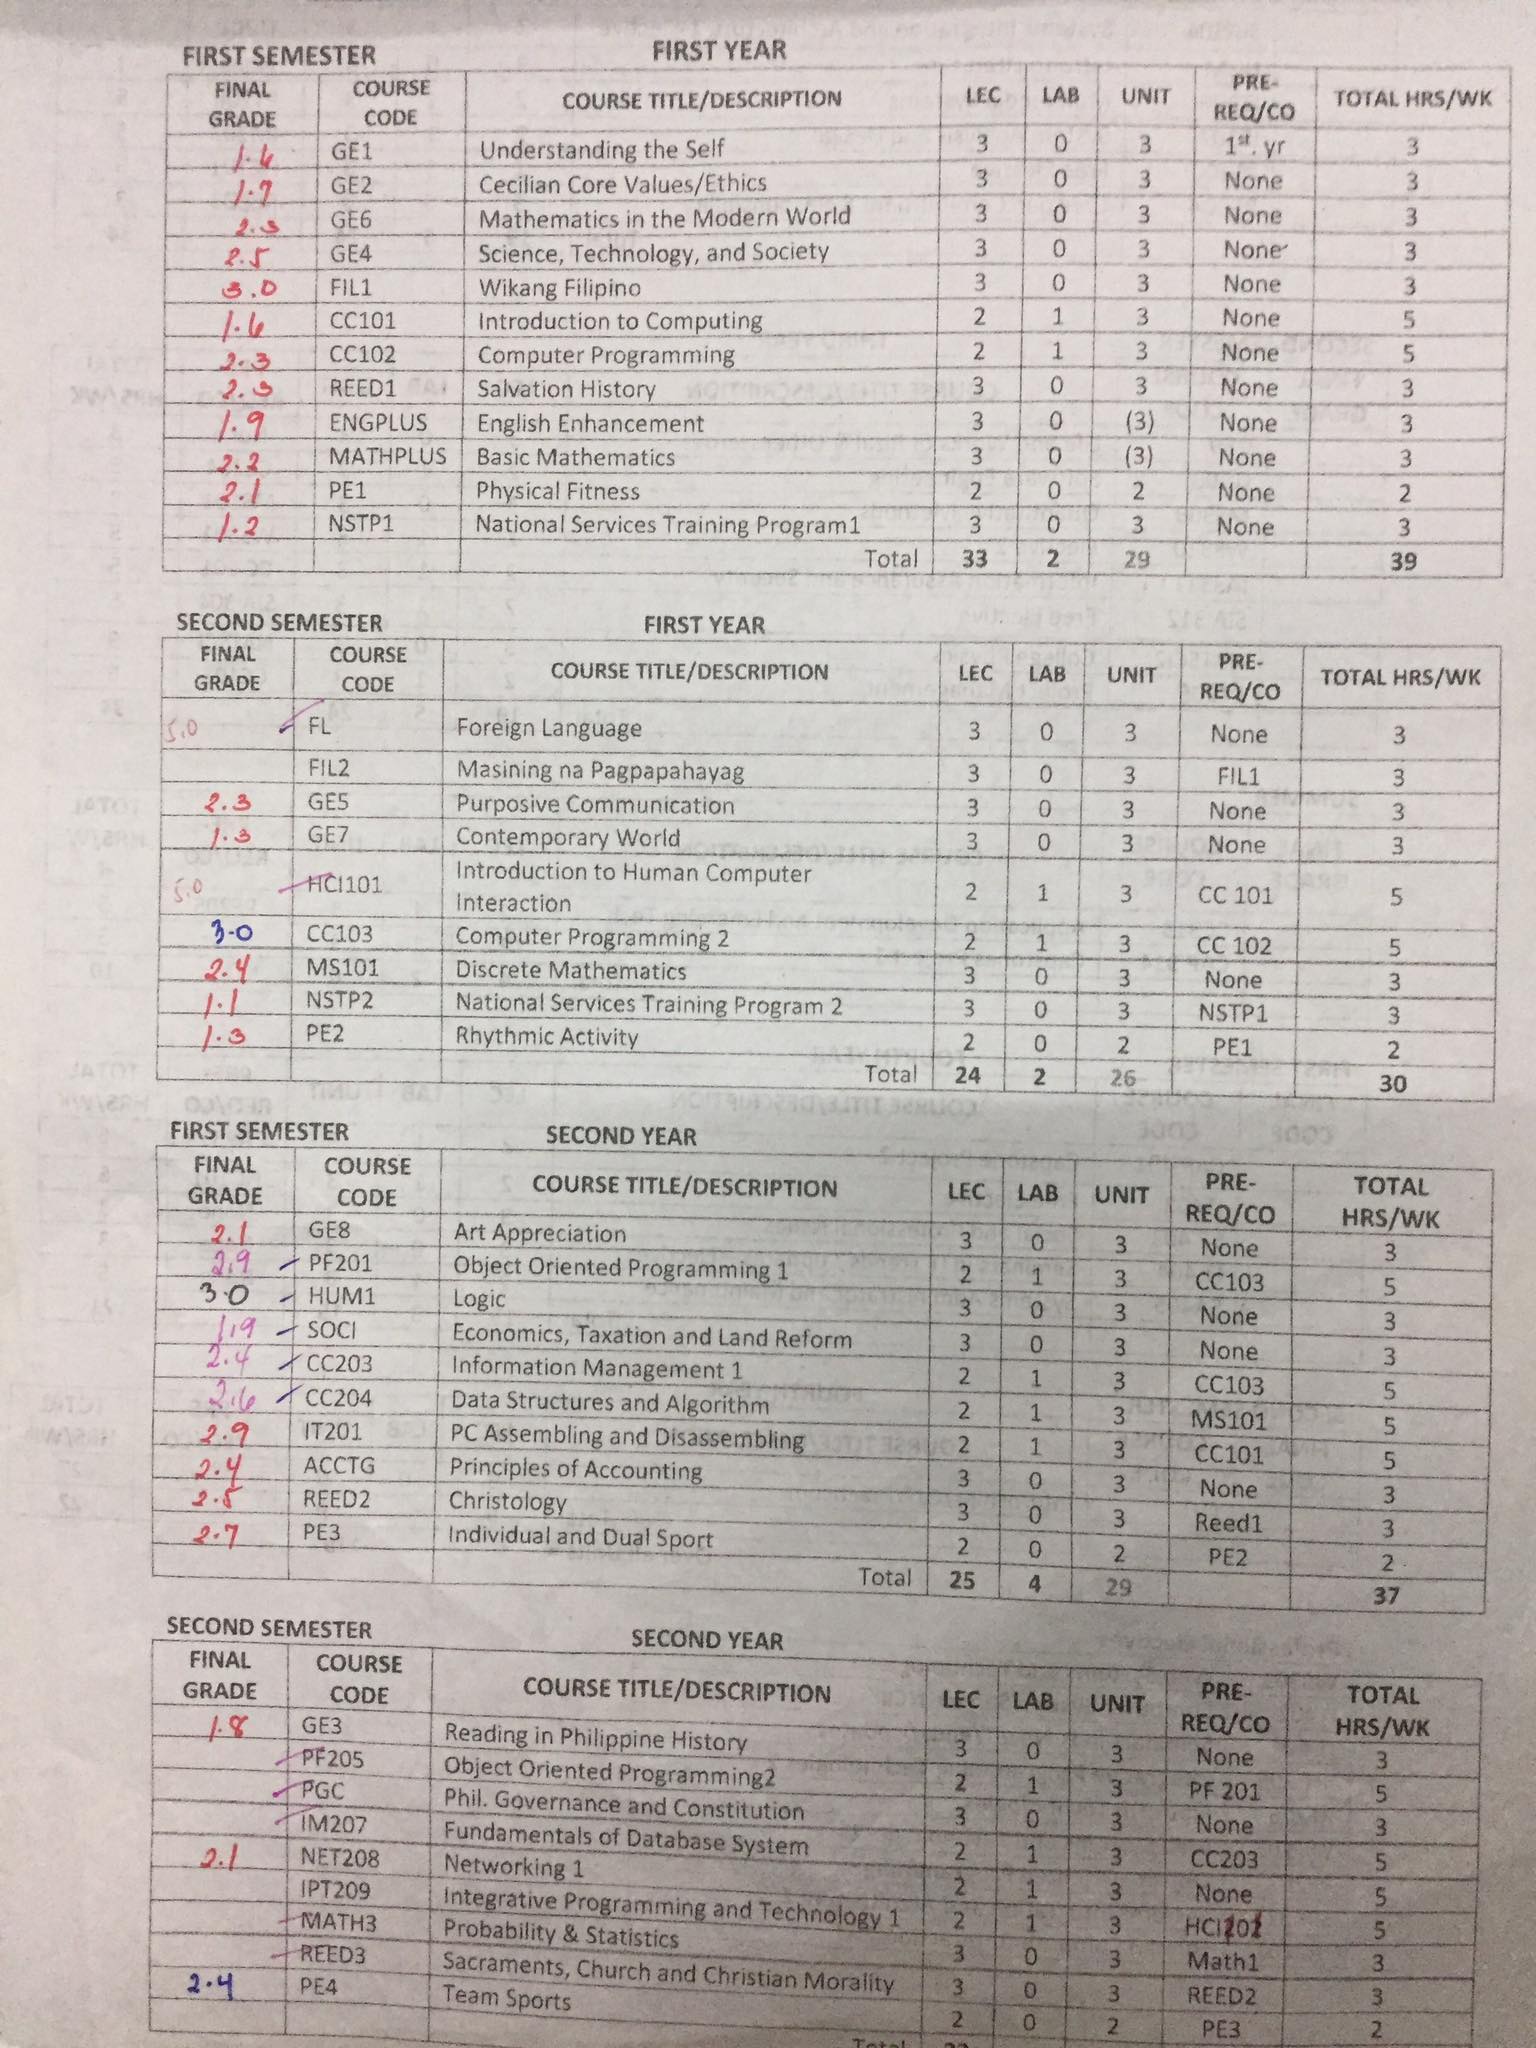 FIRST SEMESTER FIRST YEAR
FINAL GRADE COURSE CODE COURSE TITLE/DESCRIPTION LEC LAB UNIT PRE-REQ/CO TOTAL HRS/WK
1.6 GE1 Understanding the Self 3 0 3 1st. yr 3
1.7 GE2 Cecilian Core Values/Ethics 3 0 3 None 3
2.3 GE6 Mathematics in the Modern World 3 0 3 None 3
2.5 GE4 Science, Technology, and Society 3 0 3 None 3
3.0 FIL1 Wikang Filipino 3 0 3 None 3
1.6 CC101 Introduction to Computing 2 1 3 None 5
2.3 CC102 Computer Programming 2 1 3 None 5
2.3 REED1 Salvation History 3 0 3 None 3
1.9 ENGPLUS English Enhancement 3 0 (3) None 3
2.2 MATHPLUS Basic Mathematics 3 0 (3) None 3
2.1 PE1 Physical Fitness 2 0 2 None 2
1.2 NSTP1 National Services Training Program1 3 0 3 None 3
Total 33 2 29 39
SECOND SEMESTER FIRST YEAR
FINAL GRADE COURSE CODE COURSE TITLE/DESCRIPTION LEC LAB UNIT PRE-REQ/CO TOTAL HRS/WK
5.0 FL Foreign Language 3 0 3 None 3
FIL2 Masining na Pagpapahayag 3 0 3 FIL1 3
2.3 GE5 Purposive Communication 3 0 3 None 3
1.3 GE7 Contemporary World 3 0 3 None 3
5.0 HCI101 Introduction to Human Computer Interaction 2 1 3 CC 101 5
3.0 CC103 Computer Programming 2 2 1 3 CC 102 5
2.4 MS101 Discrete Mathematics 3 0 3 None 3
1.1 NSTP2 National Services Training Program 2 3 0 3 NSTP1 3
1.3 PE2 Rhythmic Activity 2 0 2 PE1 2
Total 24 2 26 30
FIRST SEMESTER SECOND YEAR
FINAL GRADE COURSE CODE COURSE TITLE/DESCRIPTION LEC LAB UNIT PRE-REQ/CO TOTAL HRS/WK
2.1 GE8 Art Appreciation 3 0 3 None 3
2.9 PF201 Object Oriented Programming 1 2 1 3 CC103 5
3.0 HUM1 Logic 3 0 3 None 3
1.9 SOCI Economics, Taxation and Land Reform 3 0 3 None 3
2.4 CC203 Information Management 1 2 1 3 CC103 5
2.6 CC204 Data Structures and Algorithm 2 1 3 MS101 5
2.9 IT201 PC Assembling and Disassembling 2 1 3 CC101 5
2.4 ACCTG Principles of Accounting 3 0 3 None 3
2.5 REED2 Christology 3 0 3 Reed1 3
2.7 PE3 Individual and Dual Sport 2 0 2 PE2 2
Total 25 4 29 37
SECOND SEMESTER SECOND YEAR
FINAL GRADE COURSE CODE COURSE TITLE/DESCRIPTION LEC LAB UNIT PRE-REQ/CO TOTAL HRS/WK
1.8 GE3 Reading in Philippine History 3 0 3 None 3
PF205 Object Oriented Programming2 2 1 3 PF 201 5
PGC Phil. Governance and Constitution 3 0 3 None 3
IM207 Fundamentals of Database System 2 1 3 CC203 5
2.1 NET208 Networking 1 2 1 3 None 5
IPT209 Integrative Programming and Technology 1 2 1 3 5
MATH3 Probability & Statistics 3 0 3 Math1 3
REED3 Sacraments, Church and Christian Morality 3 0 3 REED2 3
2.4 PE4 Team Sports 2 0 2 PE3 2
Total